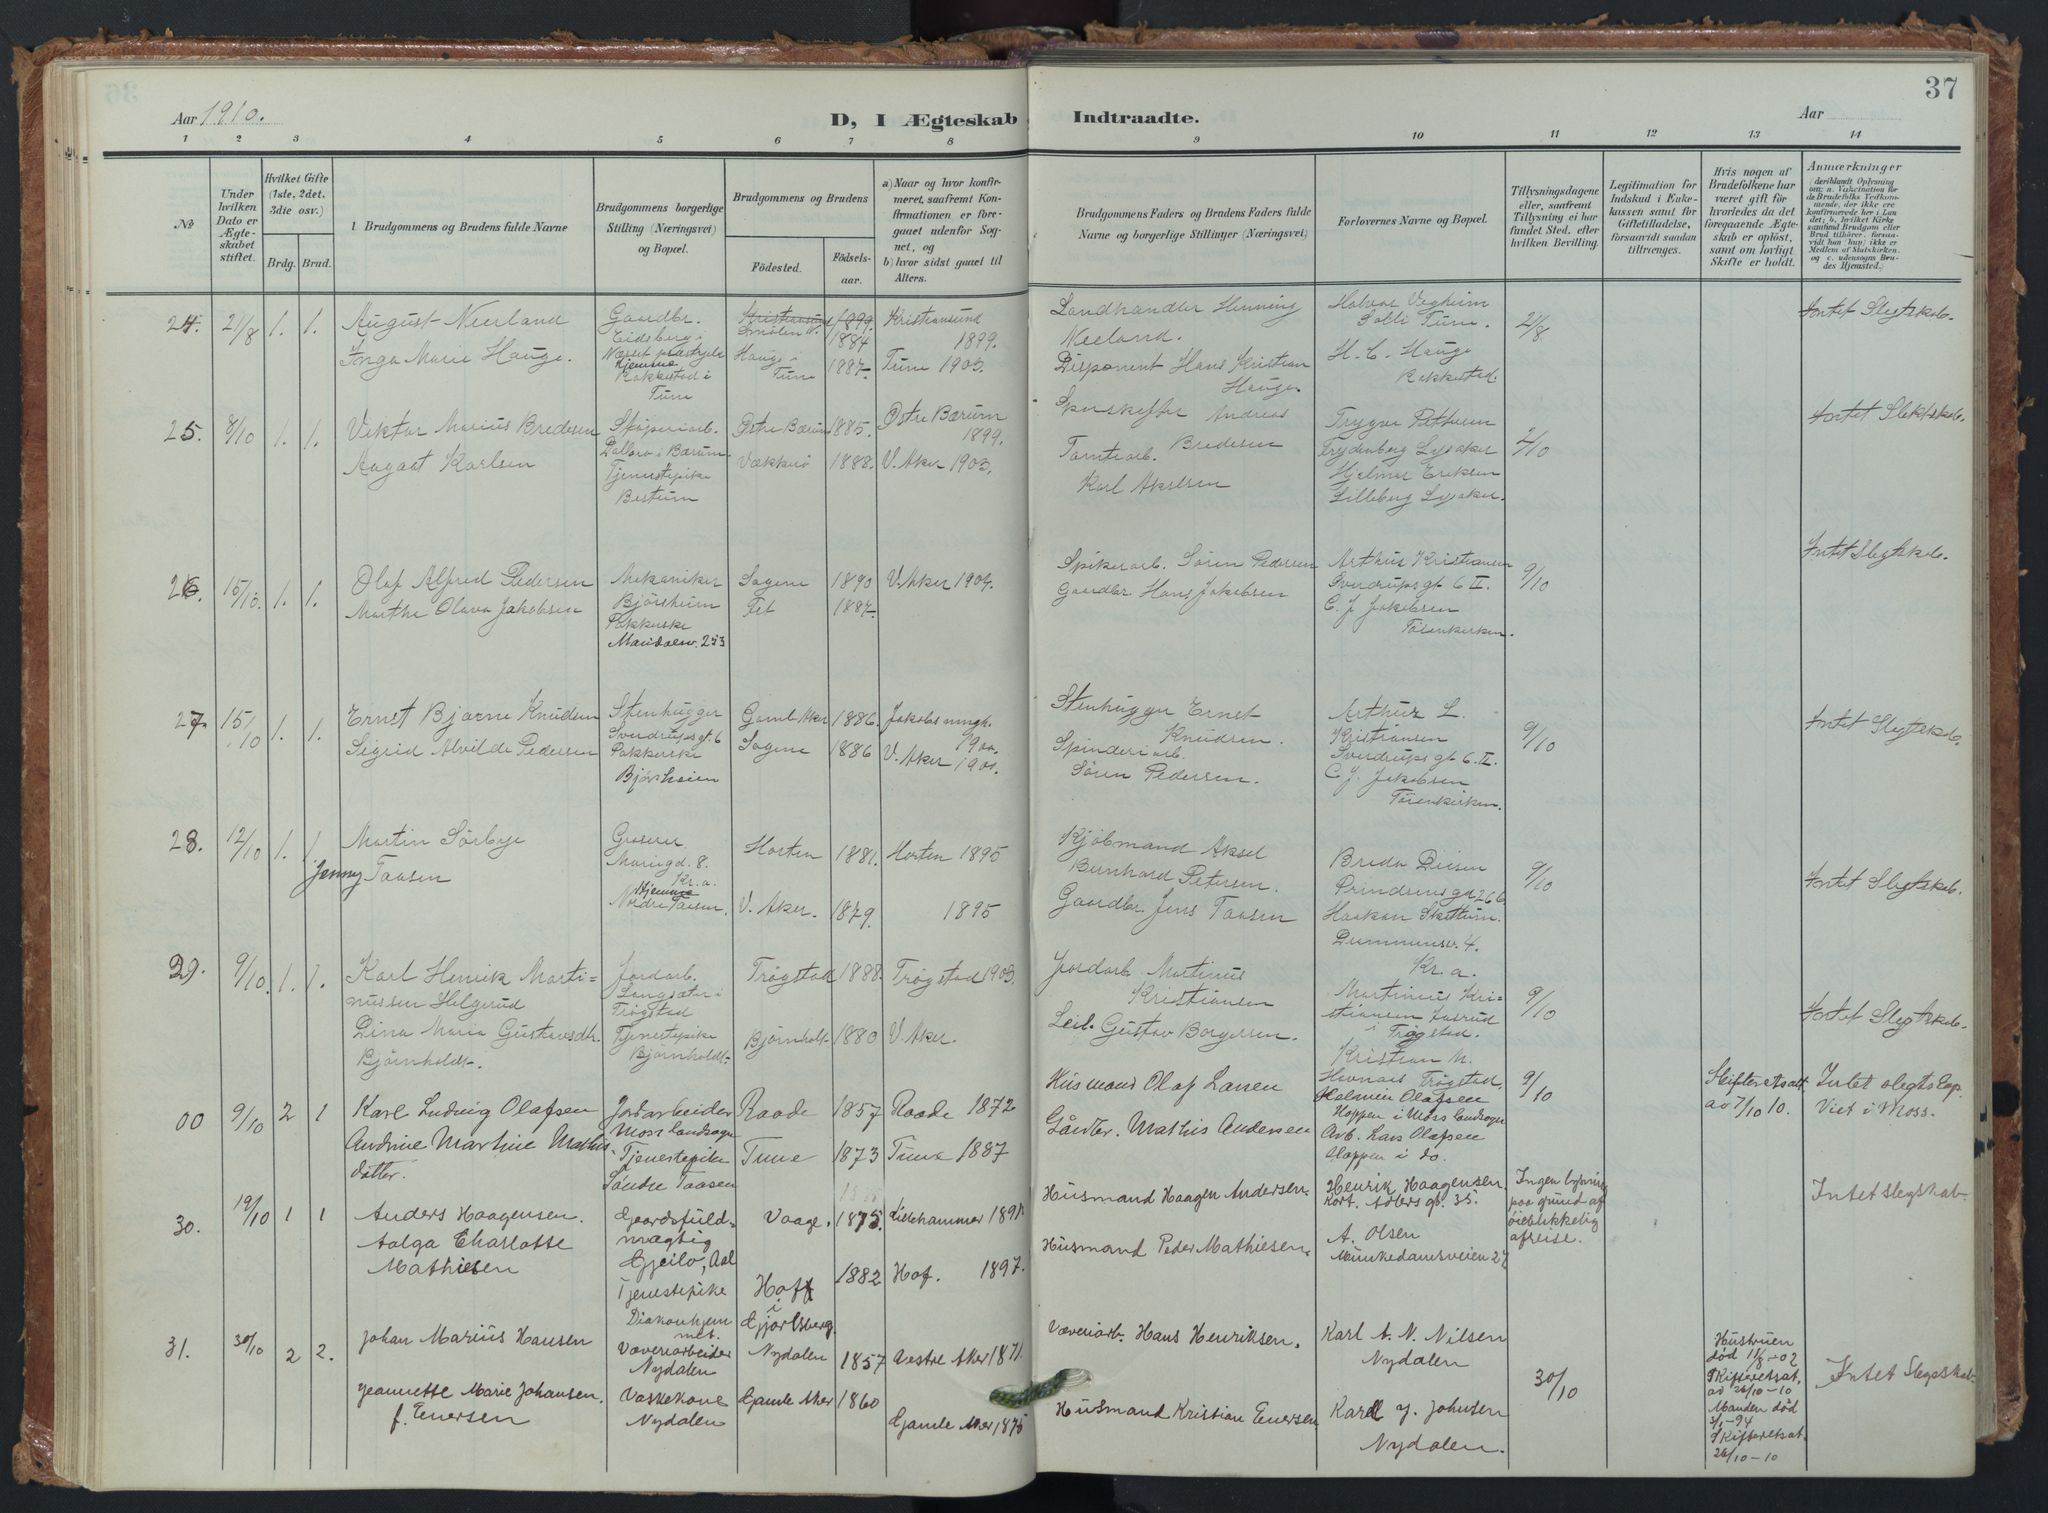 36
37
Aar 1910.
D, I Ægteskab Indtraadte.
Aar
1 2 3 4 5 6 7 8 9 10 11 12 13 14
№
Under hvilken Dato er Ægteskabet stiftet.
Hvilket Gifte (1ste, 2det, 3die osv.)
Brdg. Brud.
Brudgommens og Brudens fulde Navne
Brudgommens borgerlige Stilling (Næringsvei) og Bopæl.
Brudgommens og Brudens
Födested. Födselsaar.
a) Naar og hvor konfirmeret, saafremt Konfirmationen er foregaaet udenfor Sognet, og
b) hvor sidst gaaet til Alters.
Brudgommens Faders og Brudens Faders fulde Navne og borgerlige Stillinger (Næringsvei)
Forlovernes Navne og Bopæl.
Tillysningsdagene eller, saafremt Tillysning ei har fundet Sted, efter hvilken Bevilling.
Legitimation for Indskud i Enkekassen samt for Giftetilladelse, forsaavidt saadan tiltrænges.
Hvis nogen af Brudefolkene har været gift før hvorledes da det foregaaende Ægteskab er oplöst, samt om lovligt Skifte er holdt.
Anmærkninger
24. 21/8 1. 1.
August Neerland
Inga Marie Hauge.
Gaardbr.
Eidsberg
Hjemme
Rakkestad i
Tune
Kristiansund 1899
Smølen 1884
Hauge i
Tune 1887
Kristiansund
1899.
Tune 1903.
Landhandler Henning
Neeland.
Disponent Hans Kristian
Hauge.
Halvor Vegheim
Solli Tune.
H. C. Hauge
Rakkestad.
21/8
Intet Slegtskab.
25. 8/10 1. 1.
Viktor Marius Bredesen
August Karlsen
Støperiarb.
Bærum
Tjenestepike
Bestum
Østre Bærum 1885.
Vækkerø 1888.
Østre Bærum
1899.
V. Aker 1903.
Andreas
Bredesen
Tomtearb.
Karl Akselsen
Trygve Pettersen
Frydenberg Lysaker
Hjalmar Eriksen
Lilleberg Lysaker.
2/10
Intet Slektskab.
26. 15/10. 1. 1.
Olaf Alfred Pedersen
Marthe Olava Jakobsen
Mekaniker
Bjørsheim
Pakkerske
Maridalsv. 233
Sagene 1890
Fet 1887
V. Aker 1904.
Spikerarb. Søren Pedersen
Gaardbr. Hans Jakobsen
Arthur Kristiansen
Sverdrupsgt 6 II.
C. J. Jakobsen
Tøienkirken.
9/10
Intet Slegtskab.
27. 15/10 1. 1.
Ernst Bjarne Knudsen
Sigrid Alvilde Pedersen
Stenhugger
Sverdrupsgt. 6
Pakkerske
Bjørsheim
Gaml. Aker 1886.
Sagene 1886
Jakobs mngh.
1900.
V. Aker 1901.
Stenhugger Ernst
Knudsen.
Spinderiarb.
Søren Pedersen.
Arthur L.
Kristiansen
Sverdrupsgt 6. II.
C. J. Jakobsen
Tøienkirken.
9/10
Intet Slegtskab.
28. 12/10 1. 1.
Martin Sørbye
Jenny Taasen
Grosserer
8.
Kr.a.
Hjemme
Nordre Taasen.
Horten 1881.
V. Aker. 1879.
Horten 1895
1895
Kjøbmand Aksel
Bernhard Petersen.
Gaardbr. Jens Taasen
Breda
Prindsensgd 26 b.
Haakon
Drammensv. 4.
Kr. a.
9/10
Intet Slegtskab.
29. 9/10. 1. 1.
Karl Henrik Marti=
nussen Helgerud
Dina Maria Gustavsdtr.
Bjørnholdt.
Jordarb.
Langsæter i
Trøgstad
Tjenestepike
Bjørnholdt.
Trøgstad 1888.
Bjørnholt. 1880
Trøgstad 1903.
V. Aker.
Jordarb. Martinus
Kristiansen
Leil. Gustav Borgersen.
Martinius Kri-
stiansen
i Trøgstad.
Kristian M.
Trøgstad.
9/10
Intet Slegtskab.
00 9/10 2 1
Karl Ludvig Olafsen
Andrine Martine Mathis-
datter.
Jordarbeider
Moss landsogn
Tjenestepike
Søndre Taasen
Raade 1857
Tune 1873
Raade 1872
Tune 1887
Husmand Olaf Larsen
Gårdbr. Mathis Andersen
Halmer Olafsen
Hoppen i Moss landsogn
Arb. Lars Olafsen
Hoppen i do.
9/10
Skifteretsatt.
av 7/10 10.
Intet slegtskap.
Viet i Moss.
30. 19/10 1 1
Anders Haagensen.
Aalga Charlotte
Mathiesen
Gaardsfuld=
mægtig
Gjeilo, Aal
Tjenestepike
Diakonhjem
met.
Vaage. 1875.
Hoff 1882
i
Hjarlsberg.
Lillehammer 1891.
Hof. 1897.
Husmand Haagen Andersen.
Husmand Peder Mathiesen.
Henrik Haagensen.
Kort. Adlers gt. 35.
A. Olsen
Munkedamsveien 27
Ingen lysning
paa grund af
øieblikkelig
afreise.
Intet slegskab.
31. 30/10 2 2.
Johan Marius Hansen
Jeannette Marie Johansen.
f. Enersen
Væveriarbeider
Nydalen
Vaskekone
Nydalen
Nydalen 1857
Gamle Aker 1860
Vestre Aker 1871.
Gamle Aker 1875
Væveriarb. Hans Henriksen.
Husmand Kristian Enersen
Karl A. N. Nilsen
Nydalen
Karl J. Johnsen
Nydalen.
30/10
Hustruen
død 11/8-02
Skifteretsat.
av 26/10-10
Manden død
3/1-94
Skifteretsat.
26/10-10
Intet Slegskab.